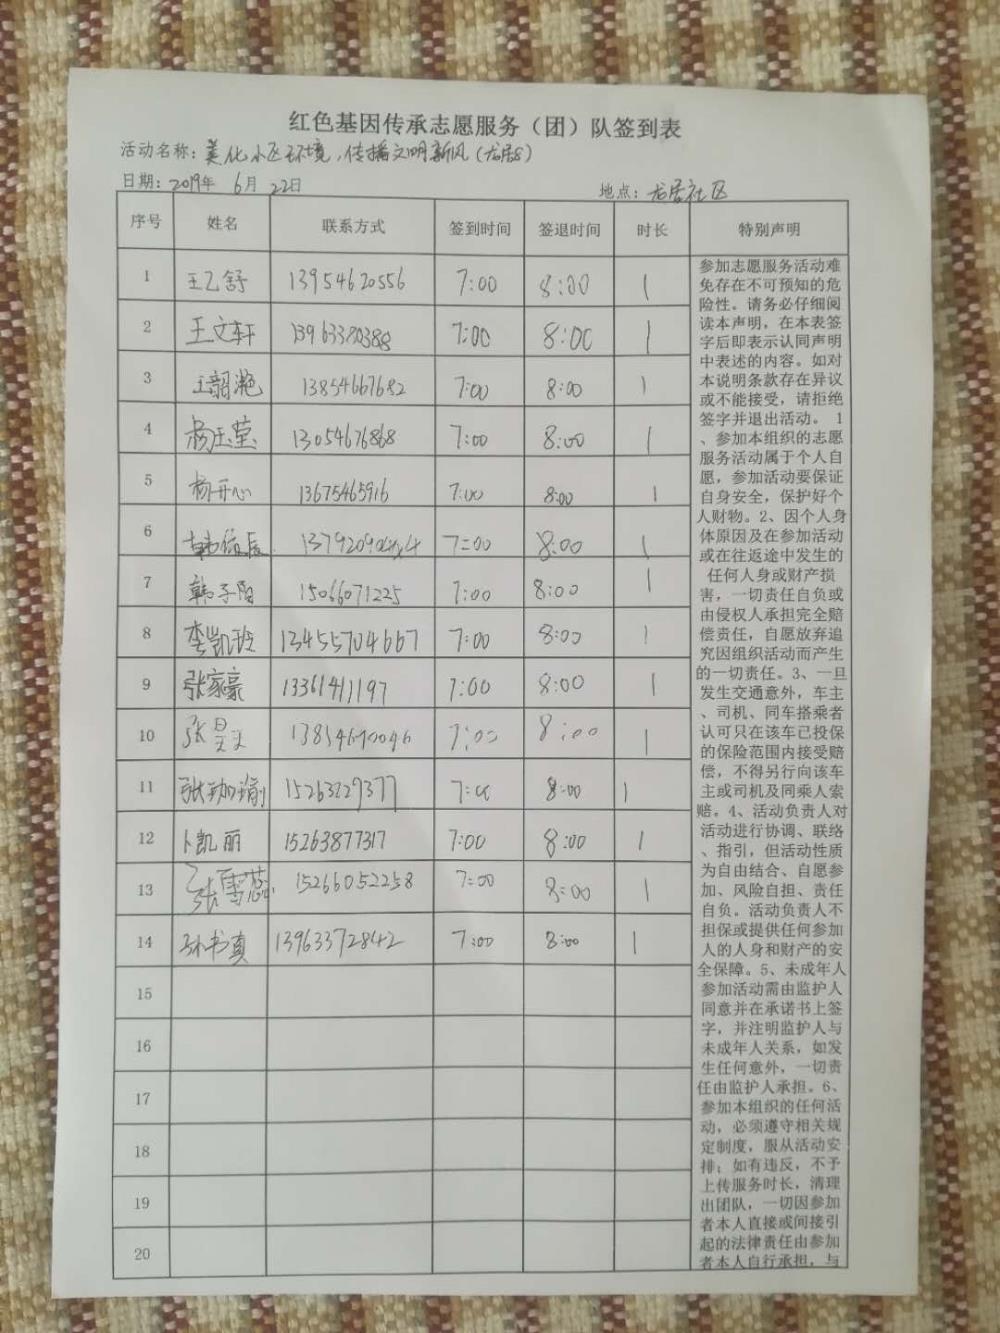 红色基因传承志愿服务（团）队签到表
活动名称：美化小区环境，传播文明新风（龙居8）
日期：2019年 6月 22日 地点：龙居社区
序号 姓名 联系方式 签到时间 签退时间 时长 特别声明
1 王乙舒 13954620556 7:00 8:00 1
2 王文轩 13963380388 7:00 8:00 1
3 王韶滟 13854667682 7:00 8:00 1
4 杨玉莹 13054676868 7:00 8:00 1
5 杨开心 13675465916 7:00 8:00 1
6 韩 7:00 8:00 1
7 韩子阳 15066071225 7:00 8:00 1
8 李凯玲 13455704667 7:00 8:00 1
9 张家豪 13361411197 7:00 8:00 1
10 张昊天 7:00 8:00 1
11 张珈瑜 15263229377 7:00 8:00 1
12 卜凯丽 15263877317 7:00 8:00 1
13 张雪蕊 15266052258 7:00 8:00 1
14 孙书真 13963372842 7:00 8:00 1
15
16
17
18
19
20
参加志愿服务活动难
免存在不可预知的危
险性。请务必仔细阅
读本声明，在本表签
字后即表示认同声明
中表述的内容。如对
本说明条款存在异议
或不能接受，请拒绝
签字并退出活动。 1
、参加本组织的志愿
服务活动属于个人自
愿，参加活动要保证
自身安全，保护好个
人财物。2、因个人身
体原因及在参加活动
或在往返途中发生的
任何人身或财产损
害，一切责任自负或
由侵权人承担完全赔
偿责任，自愿放弃追
究因组织活动而产生
的一切责任。3、一旦
发生交通意外，车主
、司机、同车搭乘者
认可只在该车已投保
的保险范围内接受赔
偿，不得另行向该车
主或司机及同乘人索
赔。4、活动负责人对
活动进行协调、联络
、指引，但活动性质
为自由结合、自愿参
加、风险自担、责任
自负。活动负责人不
担保或提供任何参加
人的人身和财产的安
全保障。5、未成年人
参加活动需由监护人
同意并在承诺书上签
字，并注明监护人与
未成年人关系，如发
生任何意外，一切责
任由监护人承担。6、
参加本组织的任何活
动，必须遵守相关规
定制度，服从活动安
排；如有违反，不予
上传服务时长，清理
出团队，一切因参加
者本人直接或间接引
起的法律责任由参加
者本人自行承担，与